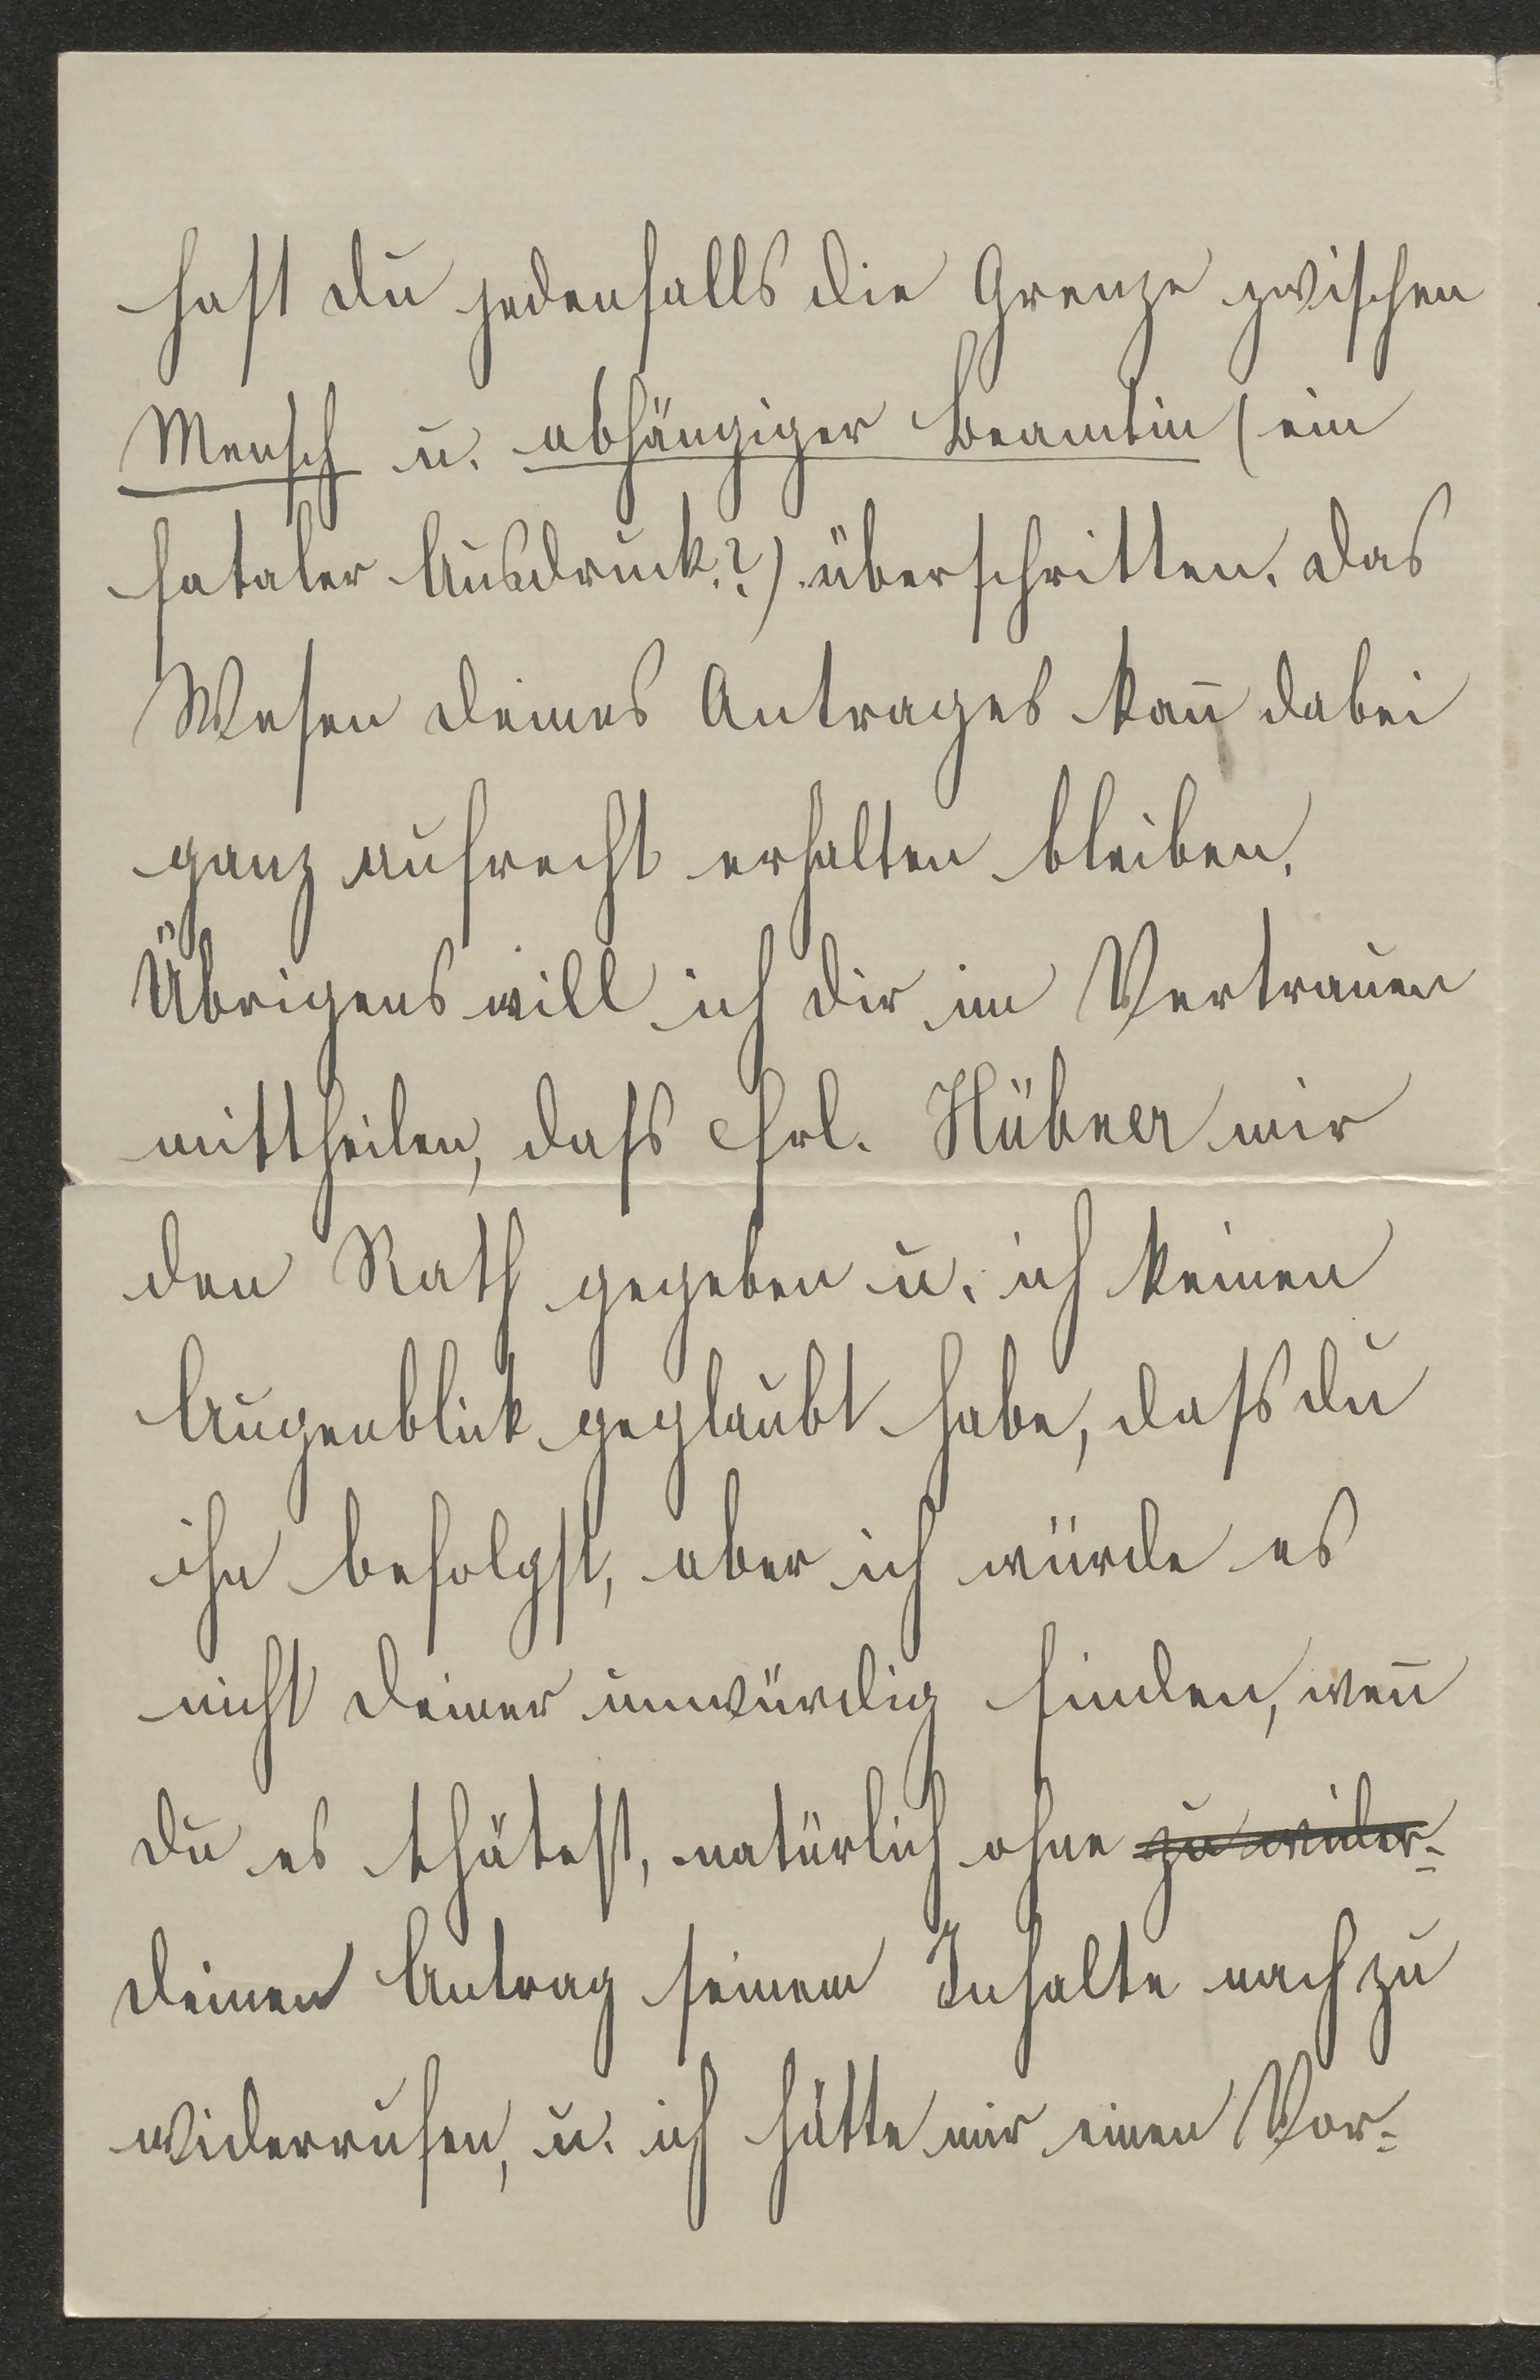 hast du jedenfalls die Grenze zwischen
Mensch u. abhängiger Beamtin (ein
fataler Ausdruck?) überschritten. Das
Wesen deines Antrages kan̄ dabei
ganz aufrecht erhalten bleiben.
Übrigens will ich dir im Vertrauen
mittheilen, dass Frl. Hübner mir
den Rath gegeben u. ich keinen
Augenblick geglaubt habe, dass du
ihn befolgst, aber ich würde es
nicht deiner unwürdig finden, wen̄
du es thätest, natürlich ohne zu wider-
deinen Antrag seinem Inhalte nach zu
widerrufen, u. ich hätte mir einen Vor-